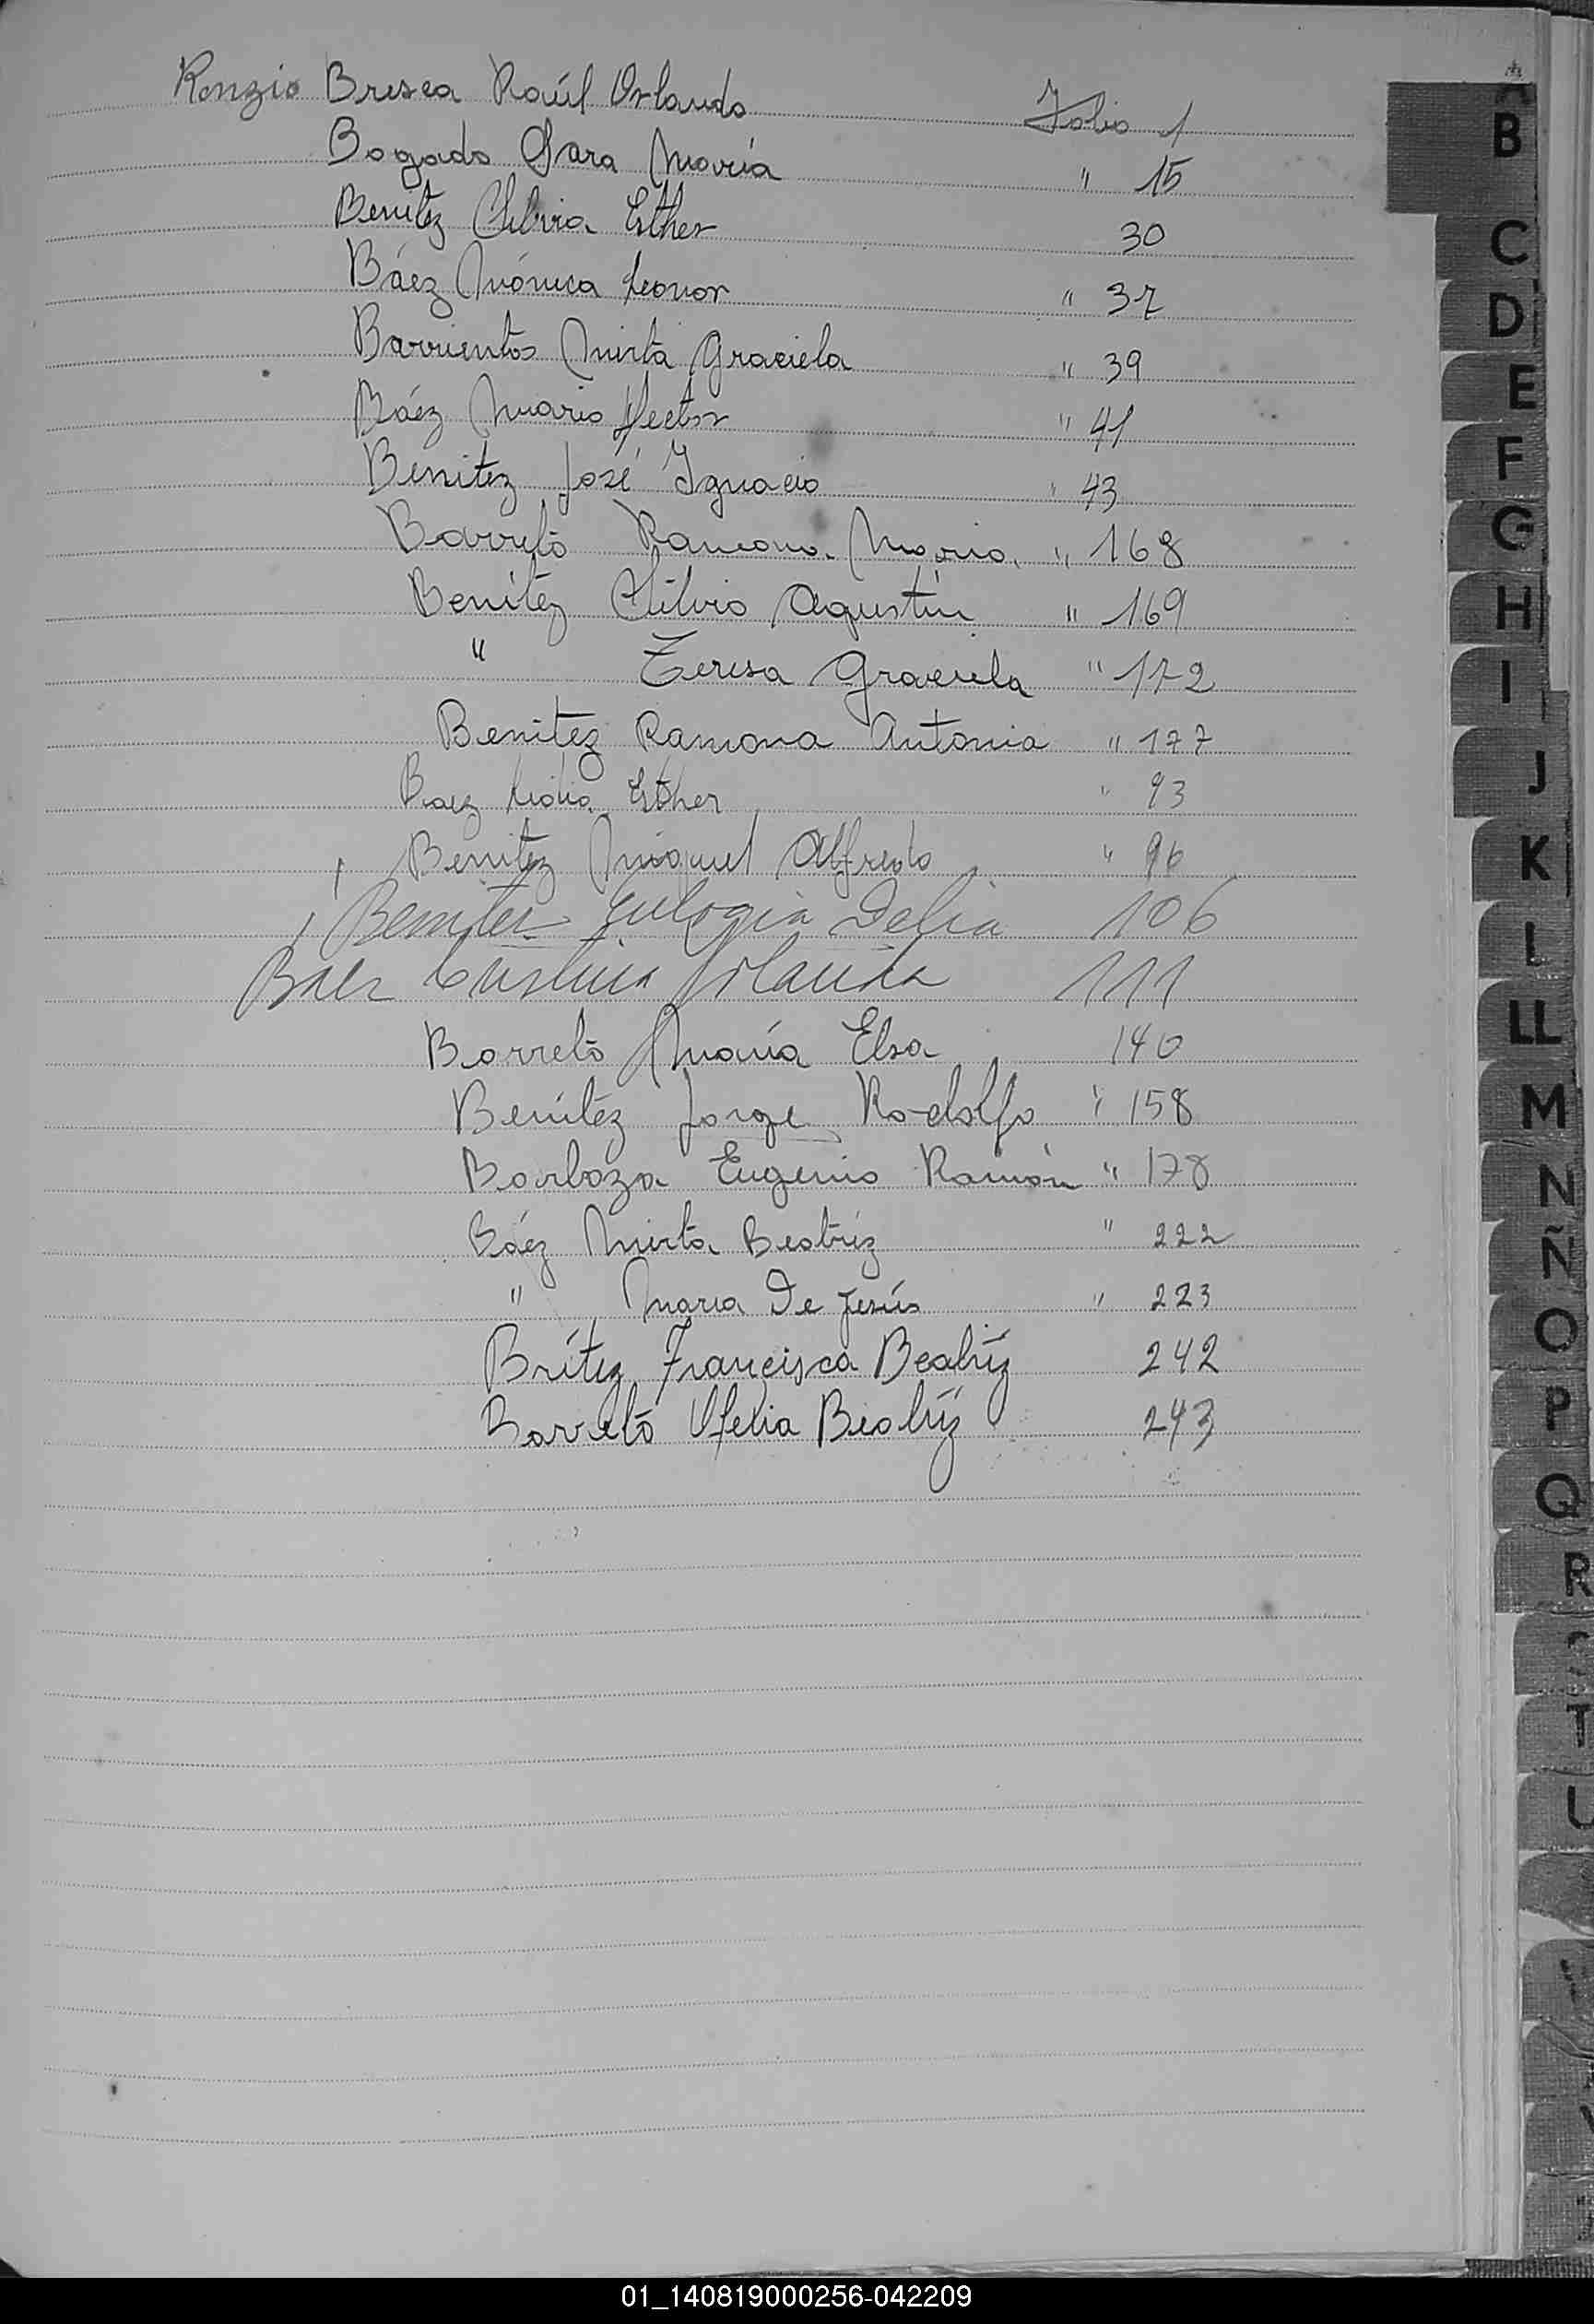 Renzio Bresca Raúl Orlando Folio 1
Bogado Sara María " 15
Benitez Silvia Esther 30
Báez Mónica Leonor " 37
Barrientos Mirta Graciela " 39
Báez Mario Hector " 41
Benitez José Ignacio " 43
Barreto Ramona María " 168
Benitez Silvio Agustín " 169
" Teresa Graciela " 172
Benitez Ramona Antonia " 177
Baez Lidia Esther " 93
Benitez Miguel Alfredo " 96
Benitez Eulogia Delia 106
Báez Cristina Yolanda 111
Barreto María Elsa 140
Benítez Jorge Rodolfo " 158
Barboza Eugenio Ramón " 178
Báez Mirta Beatríz " 222
" Maria De Jesús " 223
Brítez Francisca Beatríz 242
Barreto Ofelia Beatríz 243
B
C
D
E
F
G
H
I
J
K
L
LL
M
N
Ñ
O
P
Q
R
T
U
01_140819000256-042209